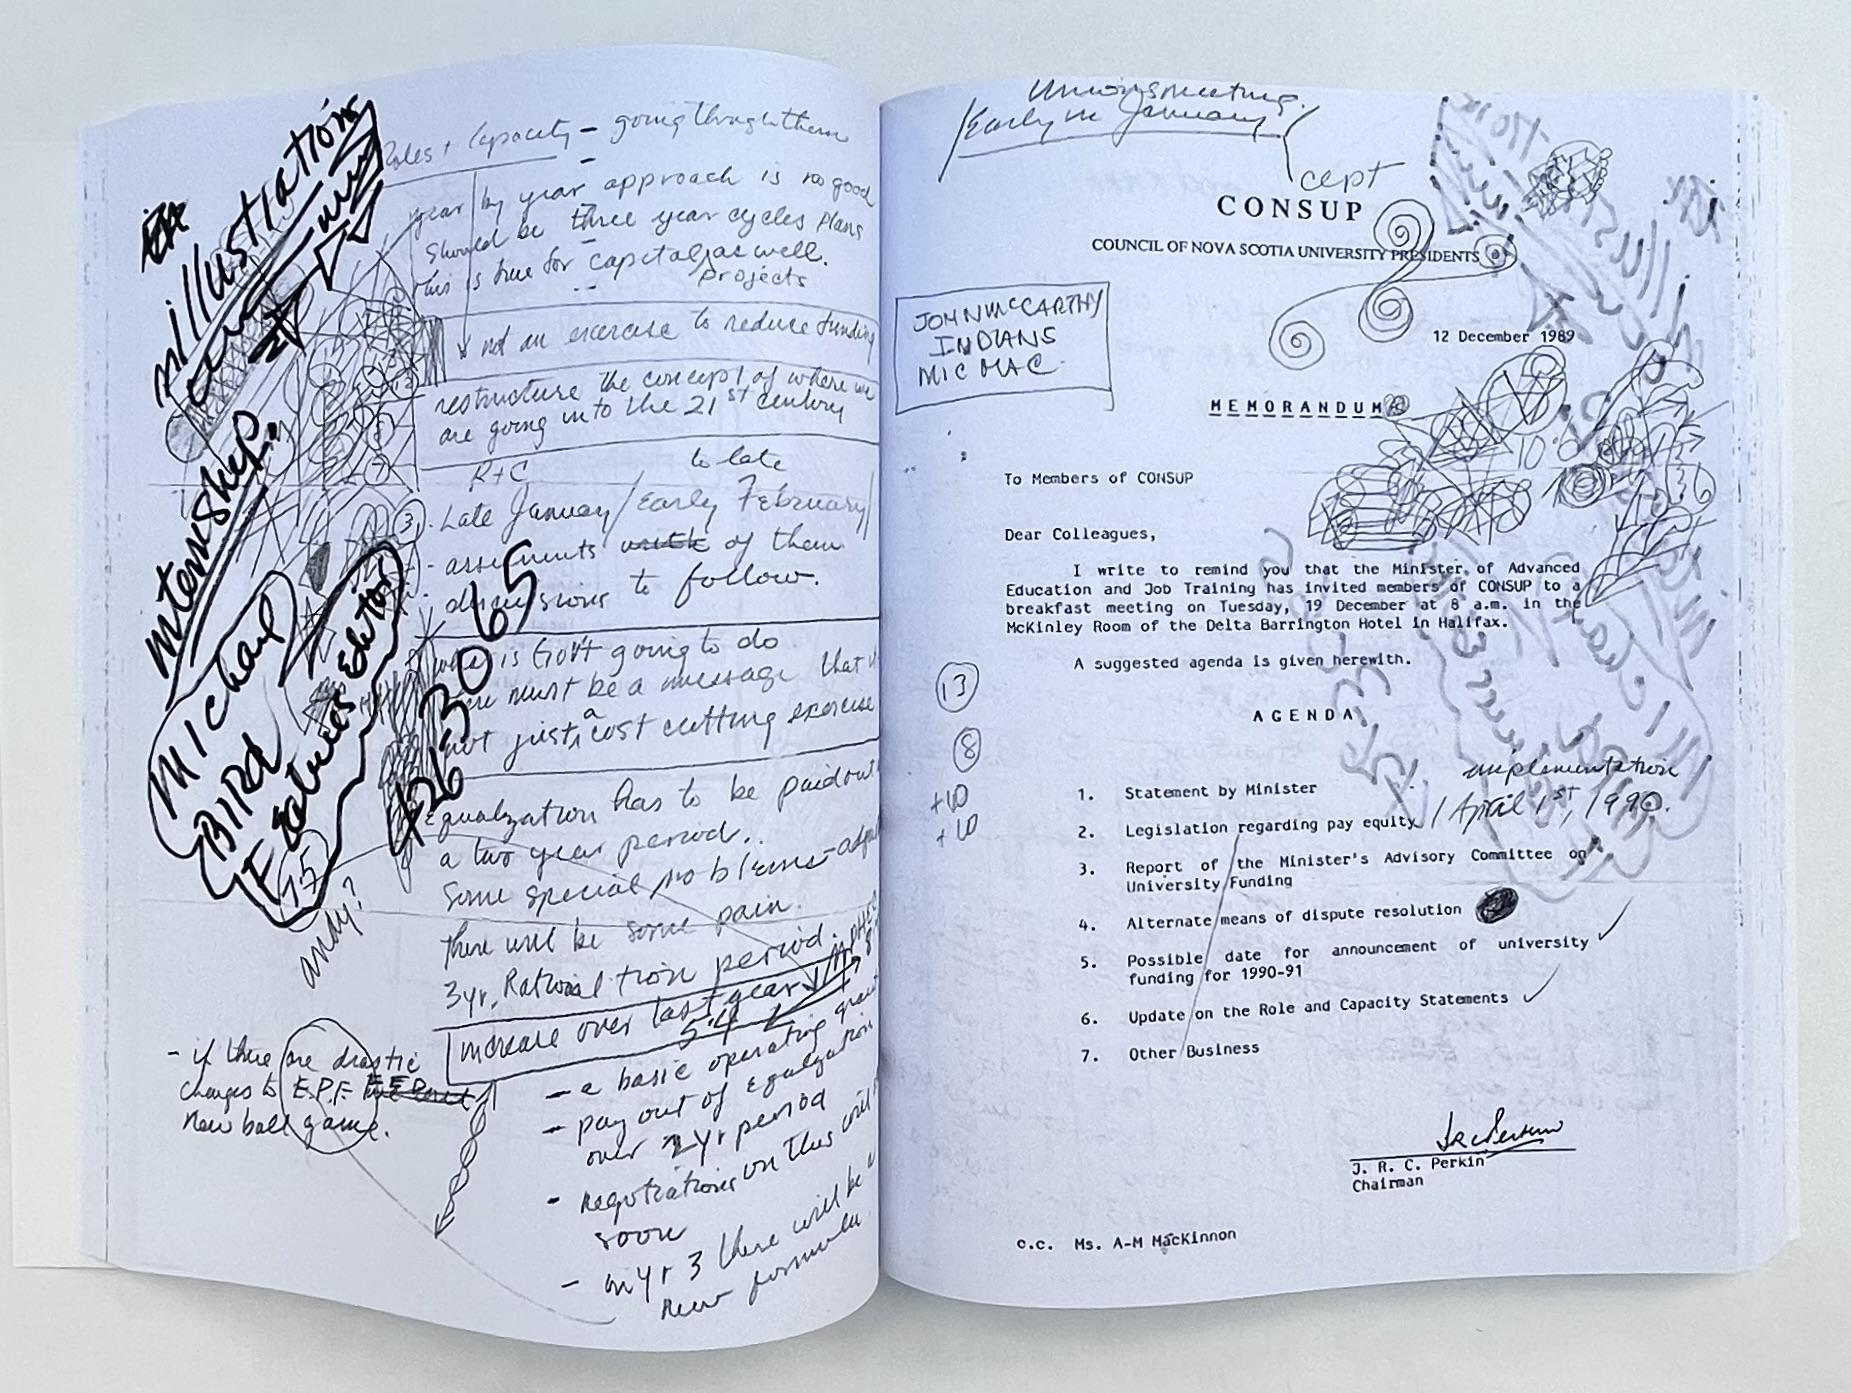 Illustration
Internship.
Michael
Bird
Features Editor
426-3065
15
andy?
Roles + Capacity - going through them
year by year approach is no good
should be three year cycles plans
this is true for capital as well.
projects
not an exercise to reduce funding
restructure the concept of where we
are going into the 21st century
R+C
to late
3
Late January / Early February /
assessments with of them
discussions to follow.
is Gov't going to do
must be a message that
not just a cost cutting exercise
Equalization has to be paid out
a two year period.
Some special problems -
There will be some pain.
3 yr. period.
increase over last year
5.4
- a basic operating grant
- pay out of Equalization
over 2 yr period
- negotiations on this will
soon
- in yr 3 there will be
new formula
- if there are drastic
changes to E.P.F.
new ball game.
Unions meeting.
/Early in January/
cept
CONSUP
COUNCIL OF NOVA SCOTIA UNIVERSITY PRESIDENTS
JOHN McCARTHY
INDIANS
MIC MAC.
12 December 1989
MEMORANDUM
To Members of CONSUP
Dear Colleagues,
I write to remind you that the Minister of Advanced
Education and Job Training has invited members of CONSUP to a
breakfast meeting on Tuesday, 19 December at 8 a.m. in the
McKinley Room of the Delta Barrington Hotel in Halifax.
A suggested agenda is given herewith.
13
8
+10
+10
AGENDA
implementation
1. Statement by Minister
2. Legislation regarding pay equity / April 1st, 1990.
3. Report of the Minister's Advisory Committee on
University Funding
4. Alternate means of dispute resolution
5. Possible date for announcement of university
funding for 1990-91
6. Update on the Role and Capacity Statements
7. Other Business
J R C Perkin
J. R. C. Perkin
Chairman
c.c. Ms. A-M MacKinnon